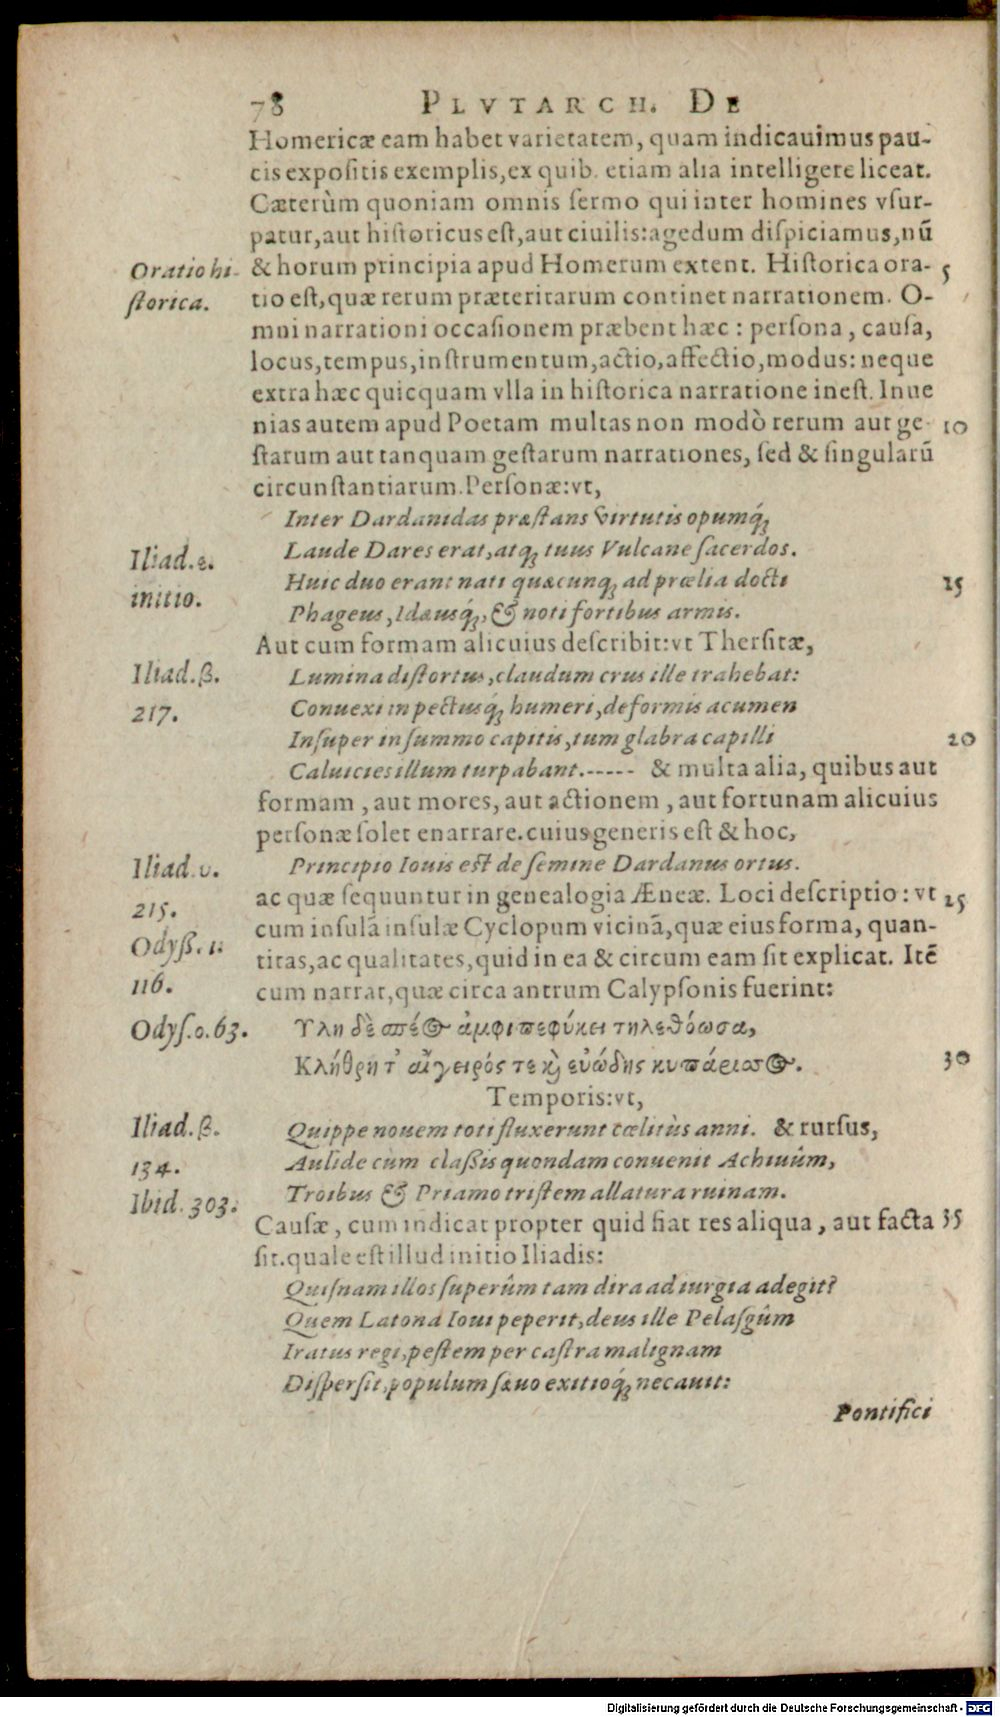 78 PLVTARCH. DE
Homericæ eam habet varietatem, quam indicauimus pau-
cis expositis exemplis, ex quib. etiam alia intelligere liceat.
Cæterùm quoniam omnis sermo qui inter homines vsur-
patur, aut historicus est, aut ciuilis: agedum dispiciamus, nū
Oratio hi-
& horum principia apud Homerum extent. Historica ora- 5
storica.
tio est, quæ rerum præteritarum continet narrationem. O-
mni narrationi occasionem præbent hæc: persona, causa,
locus, tempus, instrumentum, actio, affectio, modus: neque
extra hæc quicquam vlla in historica narratione inest. Inue
nias autem apud Poetam multas non modò rerum aut ge- 10
starum aut tanquam gestarum narrationes, sed & singularū
circunstantiarum. Personæ: vt,
Inter Dardanidas præstans virtutis opumq́;
Iliad. ε.
Laude Dares erat, atq; tuus Vulcane sacerdos.
initio.
Huic duo erant nati quæcunq; ad prœlia docti 15
Phageus, Idæusq́;, & noti fortibus armis.
Aut cum formam alicuius describit: vt Thersitæ,
Iliad. β.
Lumina distortus, claudum crus ille trahebat:
217.
Conuexi in pectusq́; humeri, deformis acumen
Insuper in summo capitis, tum glabra capilli 20
Caluicies illum turpabant.----- & multa alia, quibus aut
formam, aut mores, aut actionem, aut fortunam alicuius
personæ solet enarrare. cuius generis est & hoc,
Iliad. υ.
Principio Iouis est de semine Dardanus ortus.
215.
ac quæ sequuntur in genealogia Æneæ. Loci descriptio: vt 25
Odyß. ι.
cum insulā insulæ Cyclopum vicinā, quæ eius forma, quan-
116.
titas, ac qualitates, quid in ea & circum eam sit explicat. Itē
cum narrat, quæ circa antrum Calypsonis fuerint:
Odys. ο. 63.
Υλη δὲ σπέος ἀμφιπεφύκει τηλεθόωσα,
Κλήθρη τ᾽ αἴγειρός τε κὶ εὐώδης κυπάρισσος. 30
Temporis: vt,
Iliad. β.
Quippe nouem toti fluxerunt cœlitùs anni. & rursus,
134.
Aulide cum claßis quondam conuenit Achiuûm,
Ibid. 303.
Troibus & Priamo tristem allatura ruinam.
Causæ, cum indicat propter quid fiat res aliqua, aut facta 35
sit. quale est illud initio Iliadis:
Quisnam illos superûm tam dira ad iurgia adegit?
Quem Latona Ioui peperit, deus ille Pelasgûm
Iratus regi, pestem per castra malignam
Dispersit, populum sæuo exitioq́; necauit:
Pontifici
Digitalisierung gefördert durch die Deutsche Forschungsgemeinschaft - DFG